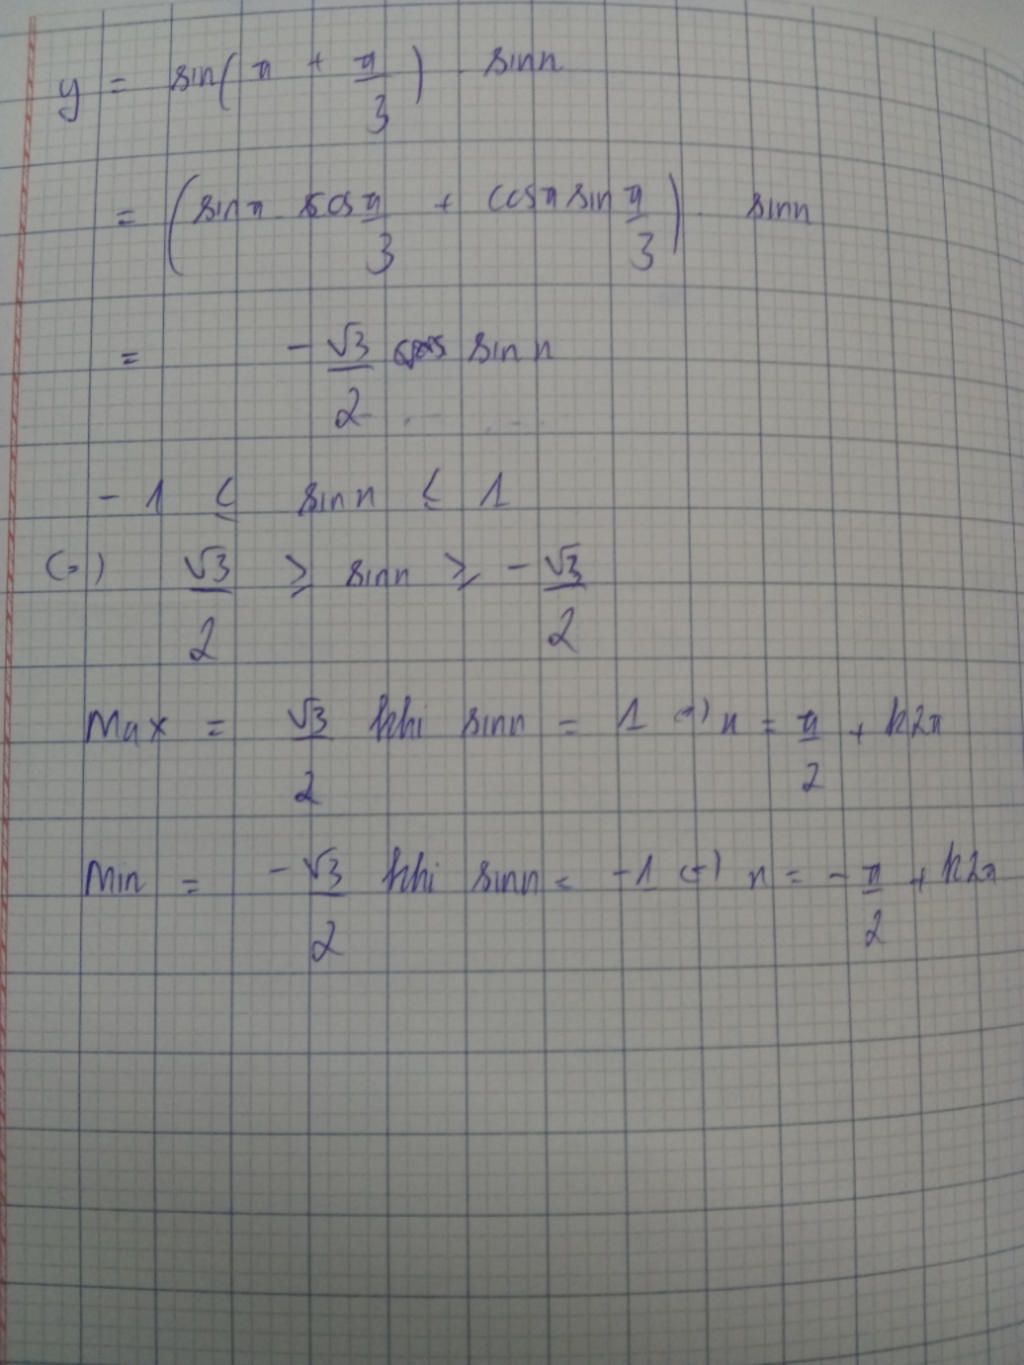 y = sin(π + π/3) . sinx
= (sinπ . cos π/3 + cosπ sin π/3) . sinx
= - √3/2 sin x
- 1 ≤ sinx ≤ 1
(=) √3/2 ≥ sinx ≥ - √3/2
Max = √3/2 khi sinx = 1 (=) x = π/2 + k2π
Min = - √3/2 khi sinx = -1 (=) x = - π/2 + k2π